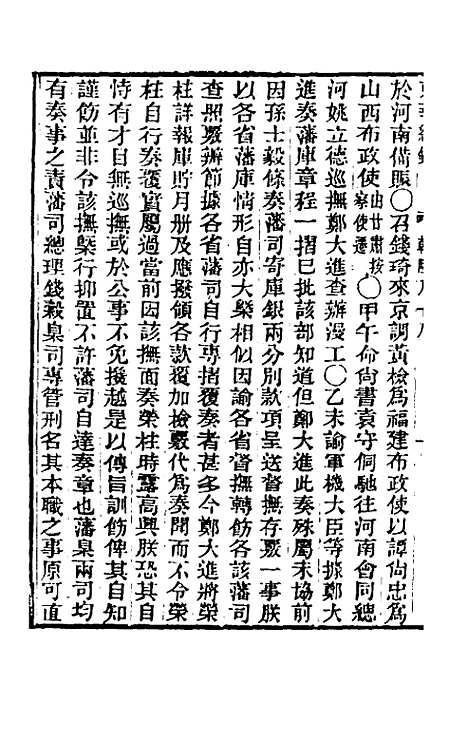 於河南備賑〇召錢琦來京調黃檢爲福建布政使以譚尙忠爲
山西布政使由甘肅按察使遷〇甲午命尙書袁守侗馳往河南會同總
河姚立德巡撫鄭大進查辦漫工〇乙未諭軍機大臣等據鄭大
進奏藩庫章程一摺已批該部知道但鄭大進此奏殊屬未協前
因孫士毅條奏藩司寄庫銀兩分別款項呈送督撫存覈一事朕
以各省藩庫情形自亦大槩相似因諭各省督撫轉飭各該藩司
查照覈辦節據各省藩司自行專摺覆奏者甚多今鄭大進將榮
柱詳報庫貯月册及應撥領各款覆加檢覈代爲奏聞而不令榮
柱自行奏覆實屬過當前因該撫面奏榮柱時露高興朕恐其自
恃有才目無巡撫或於公事不免攙越是以傳旨訓飭俾其自知
謹飭並非令該撫槩行抑置不許藩司自達奏章也藩臬兩司均
有奏事之責藩司總理錢穀臬司專管刑名其本職之事原可直